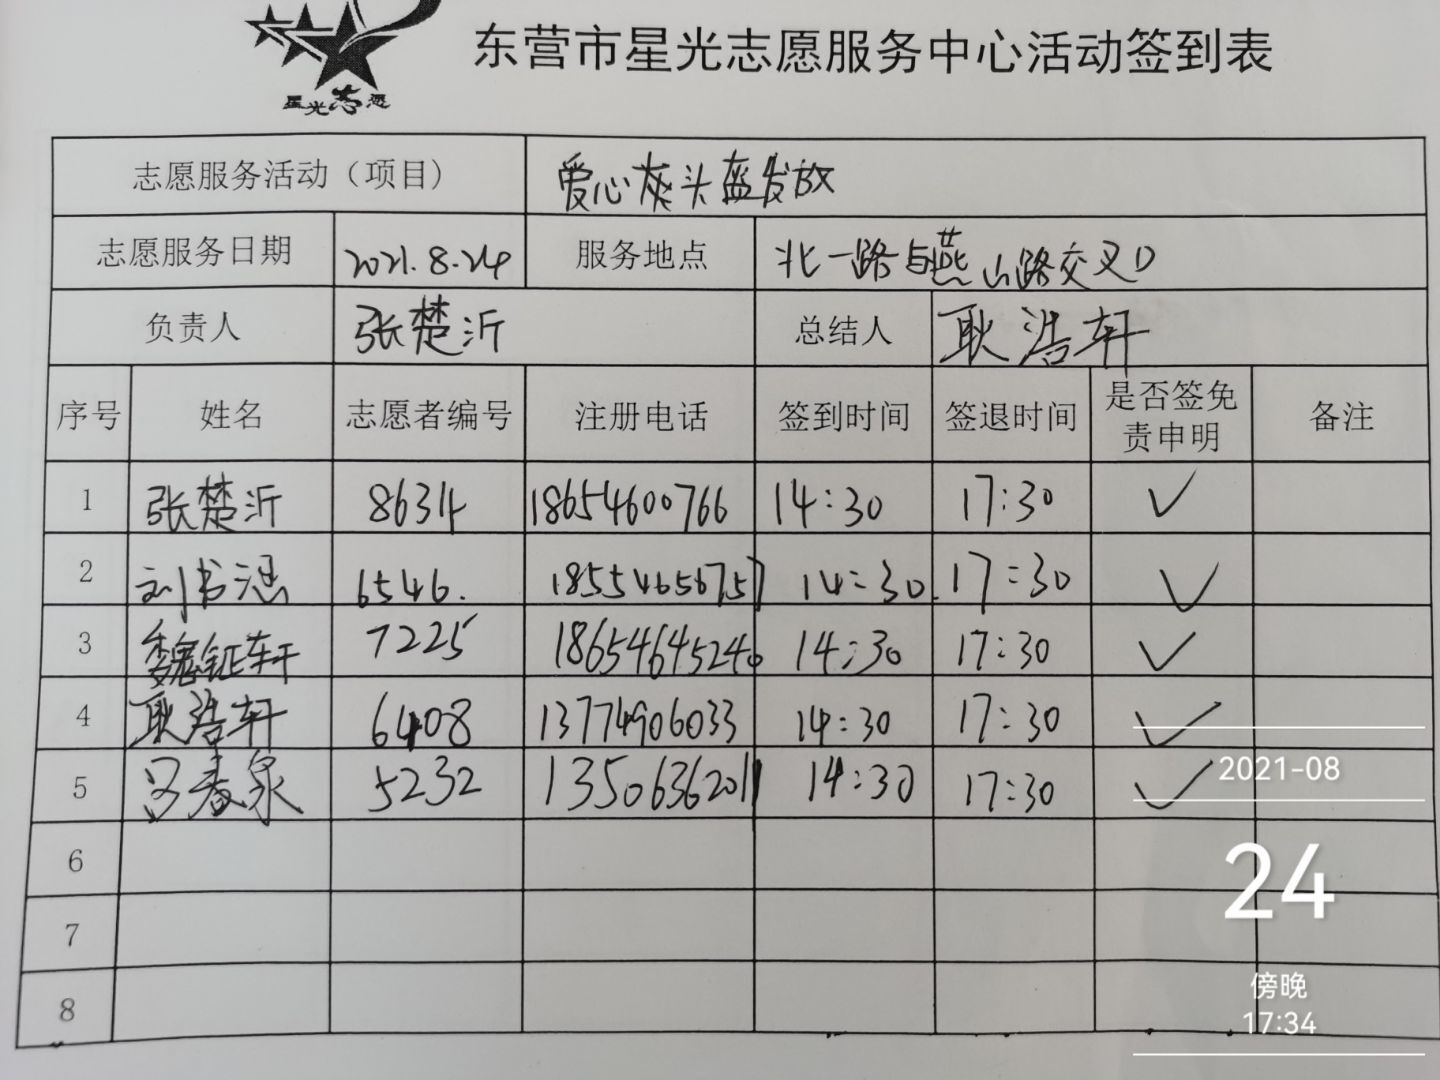 星光志愿
东营市星光志愿服务中心活动签到表
志愿服务活动（项目） 爱心头盔发放
志愿服务日期 2021.8.24 服务地点 北一路与燕山路交叉口
负责人 张楚沂 总结人 耿浩轩
序号 姓名 志愿者编号 注册电话 签到时间 签退时间 是否签免责申明 备注
1 张楚沂 86314 18654600766 14:30 17:30 ✓
2 刘书涵 6546. 18554656757 14:30. 17:30 ✓
3 魏钲轩 7225 18654645240 14:30 17:30 ✓
4 耿浩轩 6408 13774906033 14:30 17:30 ✓
5 春泉 5232 13506362011 14:30 17:30 ✓
6
7
8
2021-08
24
傍晚
17:34